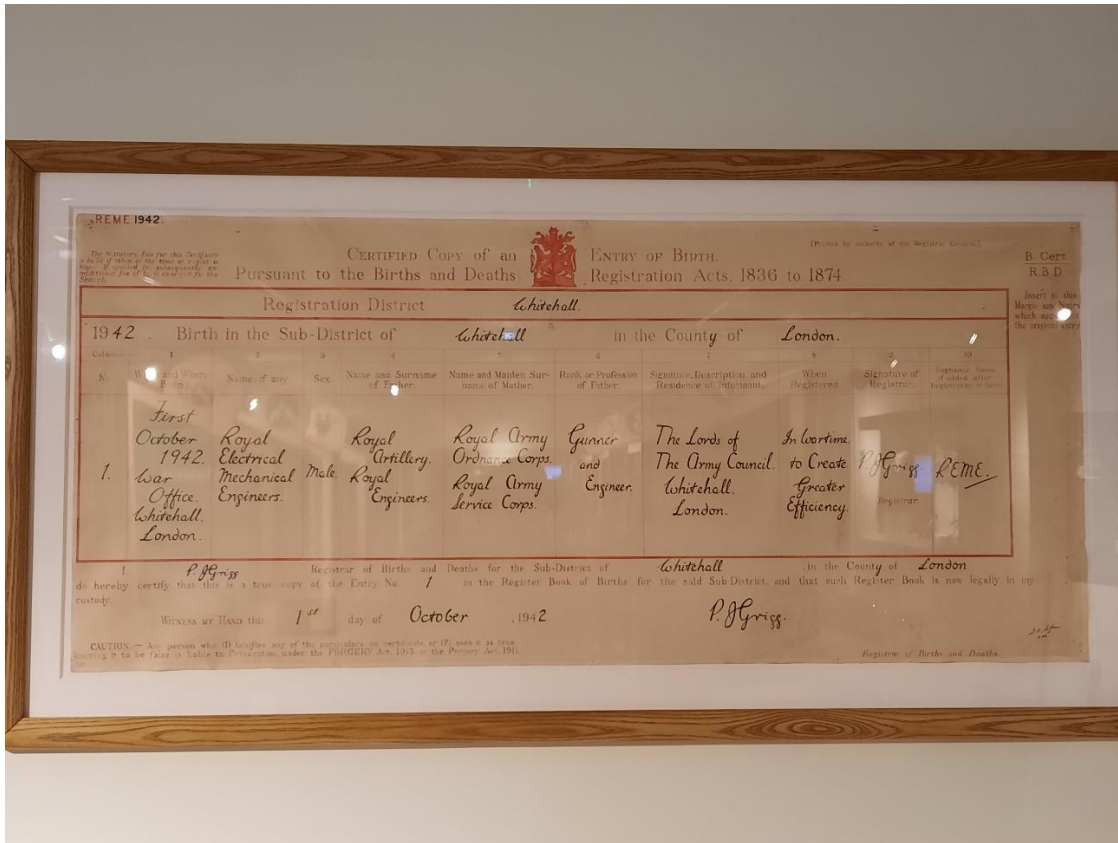 REME 1942.
CERTIFIED COPY OF AN ENTRY OF BIRTH.
Pursuant to the Births and Deaths Registration Acts, 1836 to 1874
[Printed by authority of the Registrar General.]
B. Cert
R.B.D.
The Statutory Fee for this Certificate
Search.
Insert in this
Margin any Notes
which
the original entry
Registration District Whitehall.
1942. Birth in the Sub-District of Whitehall in the County of London.
Columns 1 2 3 4 5 6 7 8 9 10
No. When and Where Born. Name, if any. Sex. Name and Surname of Father. Name and Maiden Surname of Mother. Rank or Profession of Father. Signature, Description and Residence of Informant. When Registered Signature of Registrar. Baptismal Name, if added after Registration of
1. First October 1942. War Office. Whitehall. London. Royal Electrical Mechanical Engineers. Male. Royal Artillery. Royal Engineers. Royal Army Ordnance Corps. Royal Army Service Corps. Gunner and Engineer. The Lords of The Army Council. Whitehall. London. In Wartime to Create Greater Efficiency. P. J Grigg Registrar. REME.
I, P. J Grigg Registrar of Births and Deaths for the Sub-District of Whitehall, in the County of London
do hereby certify that this is a true copy of the Entry No. 1 in the Register Book of Births for the said Sub-District, and that such Register Book is now legally in my
custody.
WITNESS MY HAND this 1st day of October, 1942 P. J Grigg.
CAUTION — Any person who (1) falsifies any of the particulars on certificate, or (2) uses it as true
knowing it to be false, is liable to Prosecution under the FORGERY Act, 1913, or the Perjury Act, 1911.
Registrar of Births and Deaths.